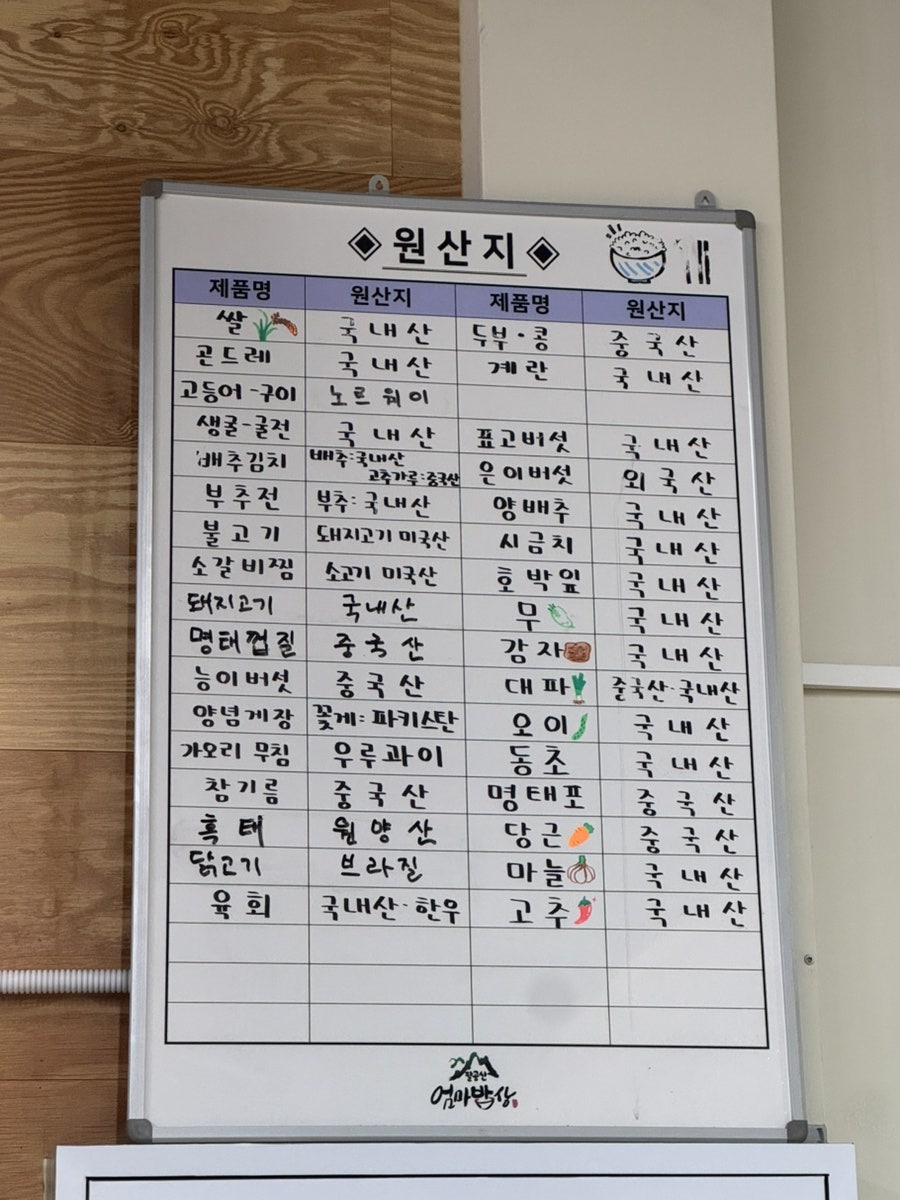 ◈ 원산지 ◈
제품명 원산지 제품명 원산지
쌀 국내산 두부·콩 중국산
곤드레 국내산 계란 국내산
고등어-구이 노르웨이
생굴-굴전 국내산 표고버섯 국내산
배추김치 배추:국내산 고추가루:중국산 은이버섯 외국산
부추전 부추:국내산 양배추 국내산
불고기 돼지고기 미국산 시금치 국내산
소갈비찜 소고기 미국산 호박잎 국내산
돼지고기 국내산 무 국내산
명태껍질 중국산 감자 국내산
능이버섯 중국산 대파 중국산·국내산
양념게장 꽃게:파키스탄 오이 국내산
가오리 무침 우루과이 동초 국내산
참기름 중국산 명태포 중국산
흑태 원양산 당근 중국산
닭고기 브라질 마늘 국내산
육회 국내산·한우 고추 국내산
팔공산
엄마밥상